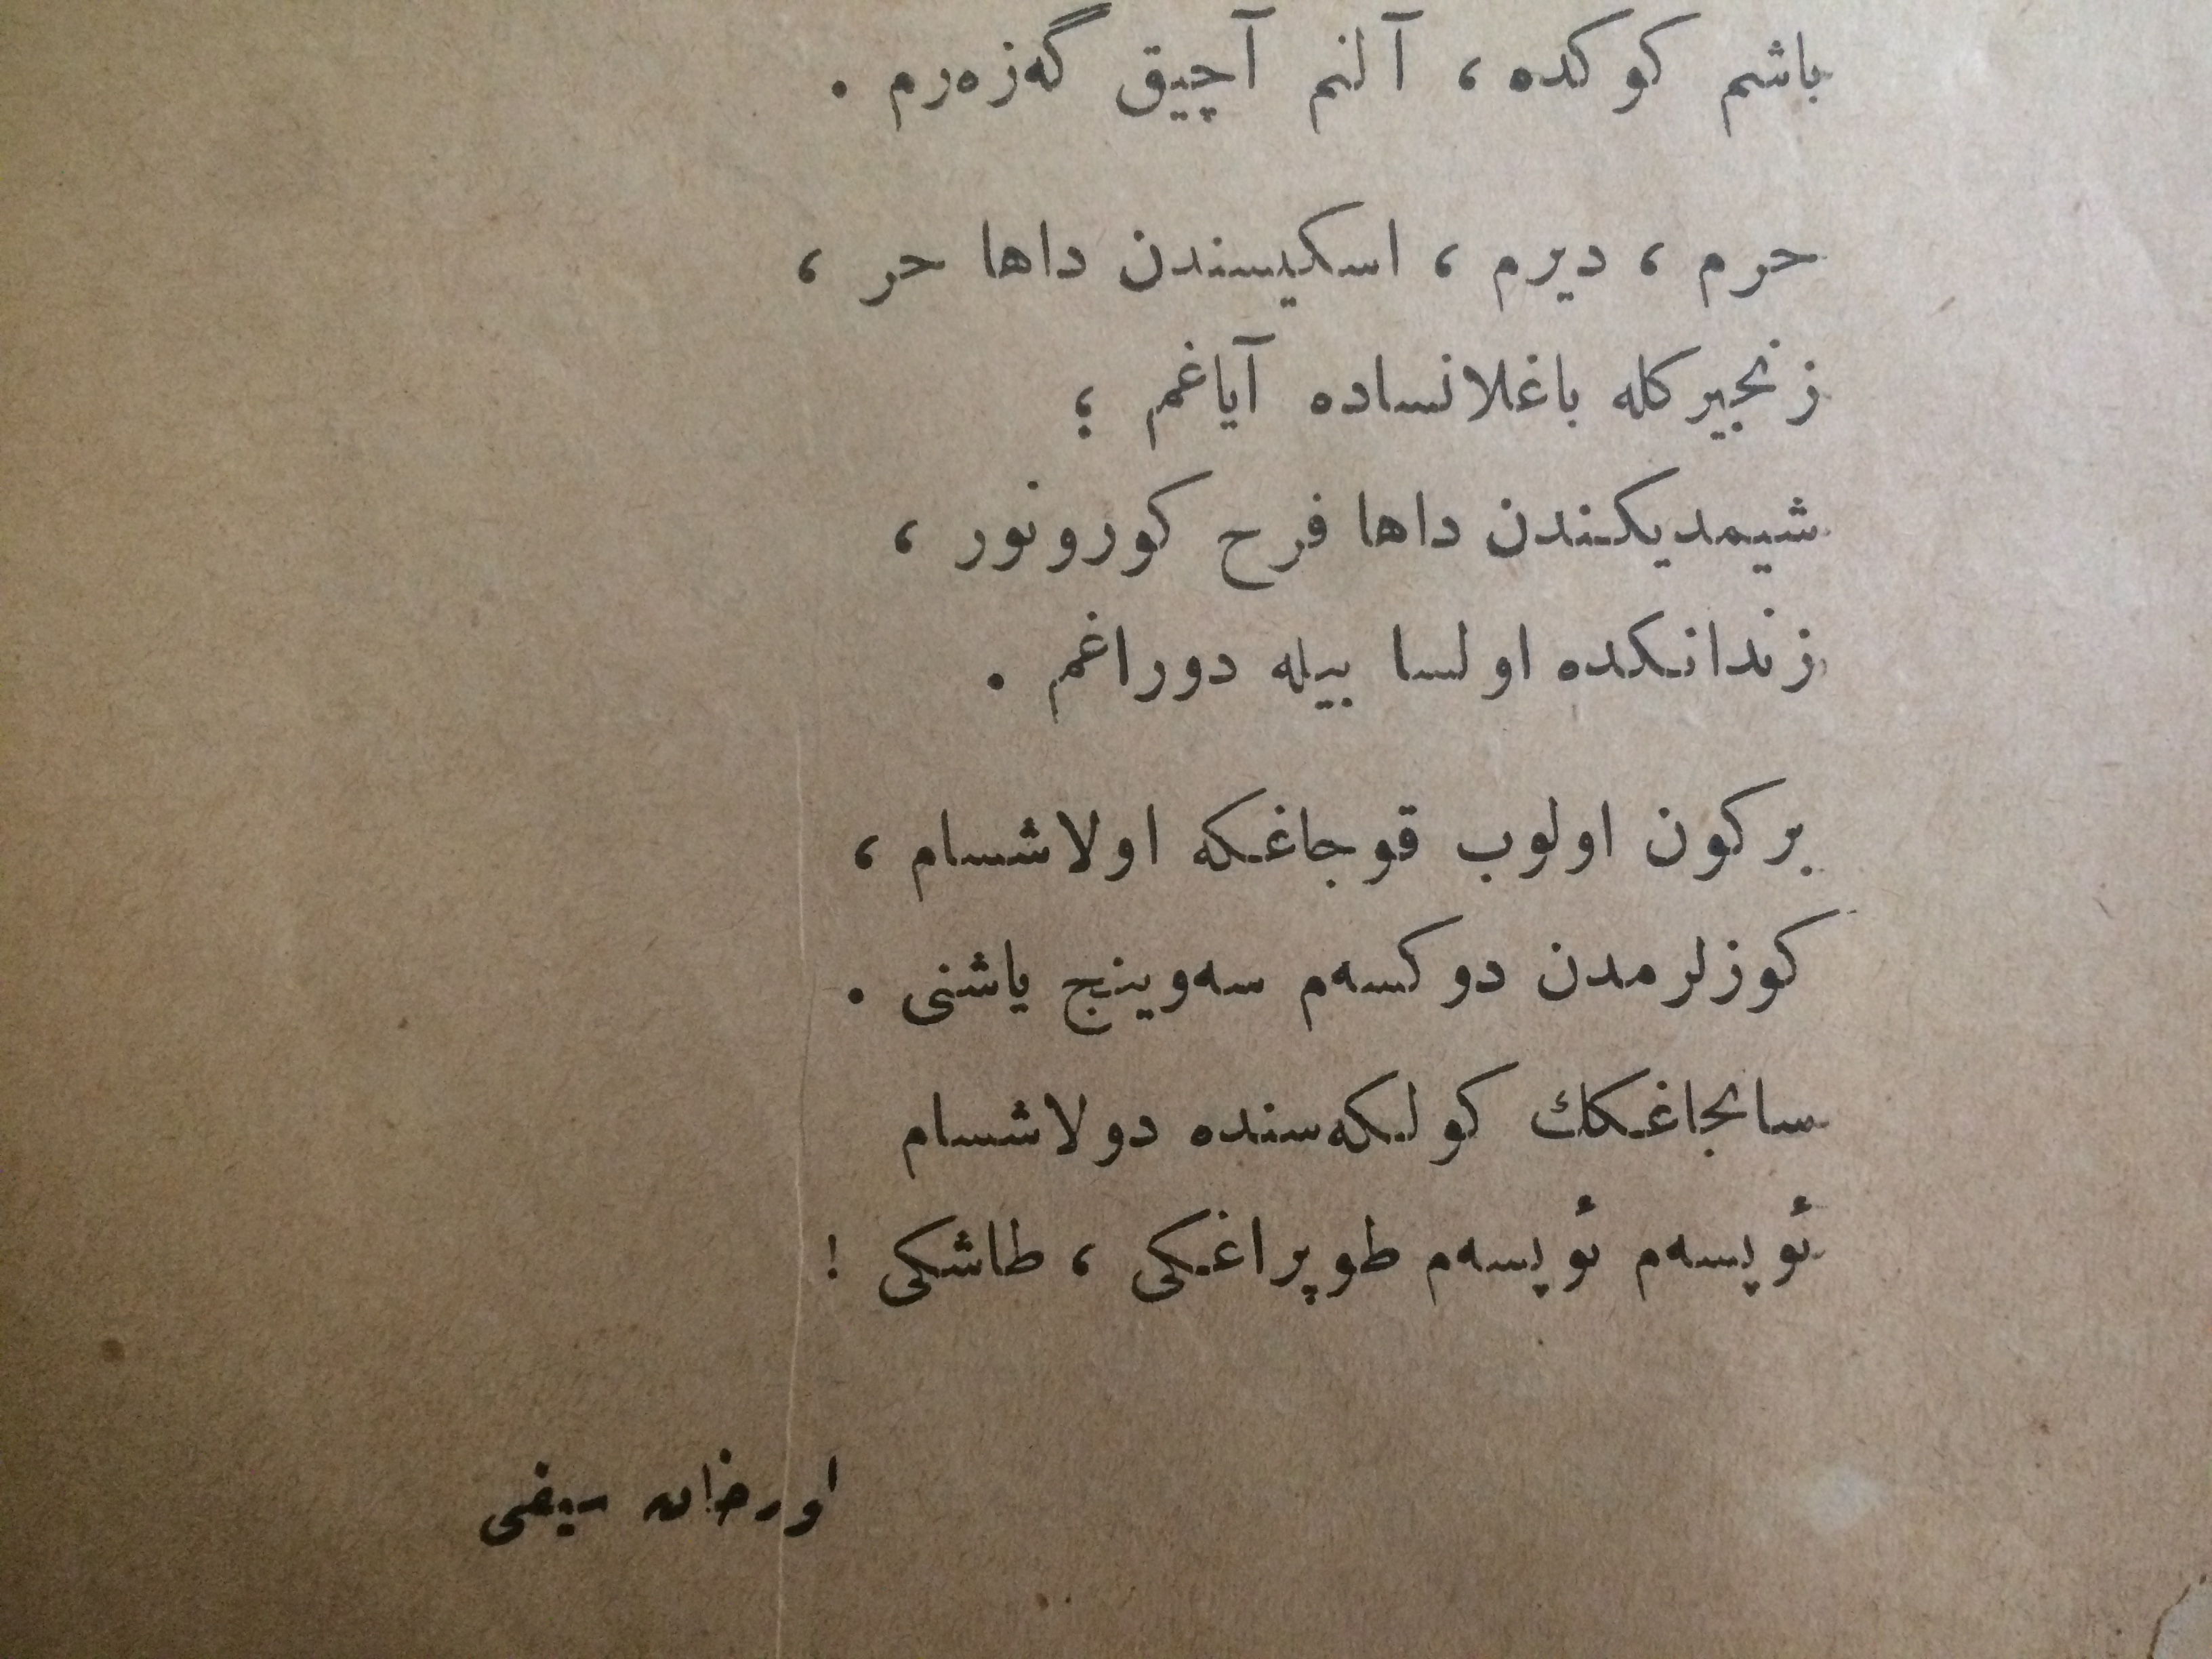 باشم كوكده ، آلنم آچيق گه‌زه‌رم .
حرم ، ديرم ، اسكيسندن داها حر ،
زنجيركله باغلانساده آياغم ؛
شيمديكندن داها فرح كورونور ،
زندانكده اولسا بيله دوراغم .
بر كون اولوب قوجاغكه اولاشسام ،
كوزلرمدن دوكسه‌م سه‌وينج ياشنى .
سانجاغكك كولكه‌سنده دولاشسام
ئوپسه‌م ئوپسه‌م طوپراغكى ، طاشكى !
اورخان سيفى